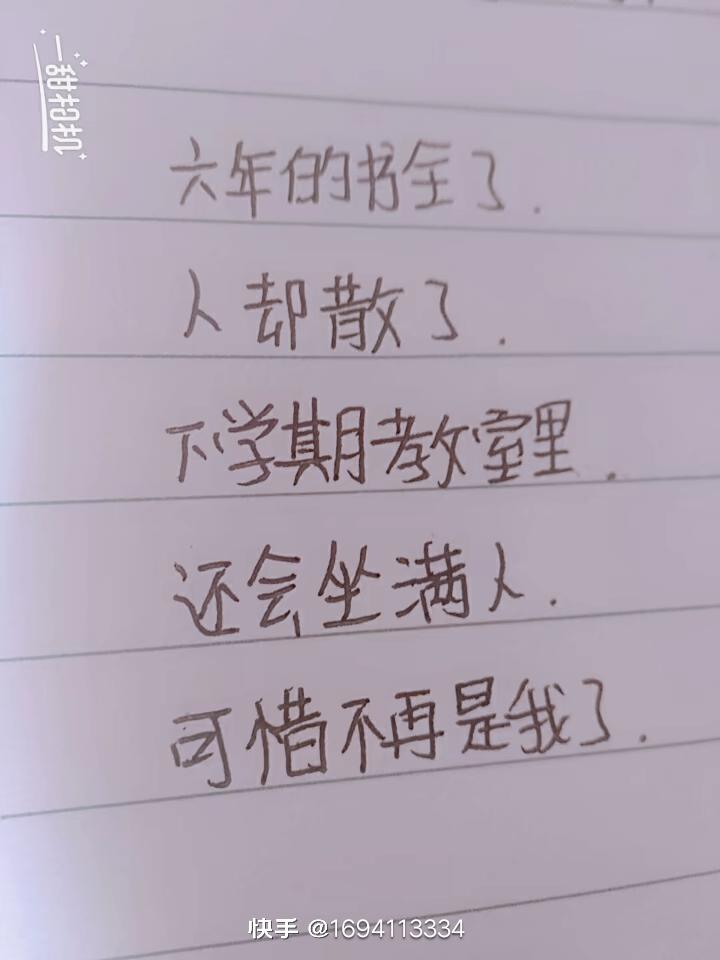 一甜相机
六年的书全了.
人却散了.
下学期教室里.
还会坐满人.
可惜不再是我了.
快手 @1694113334